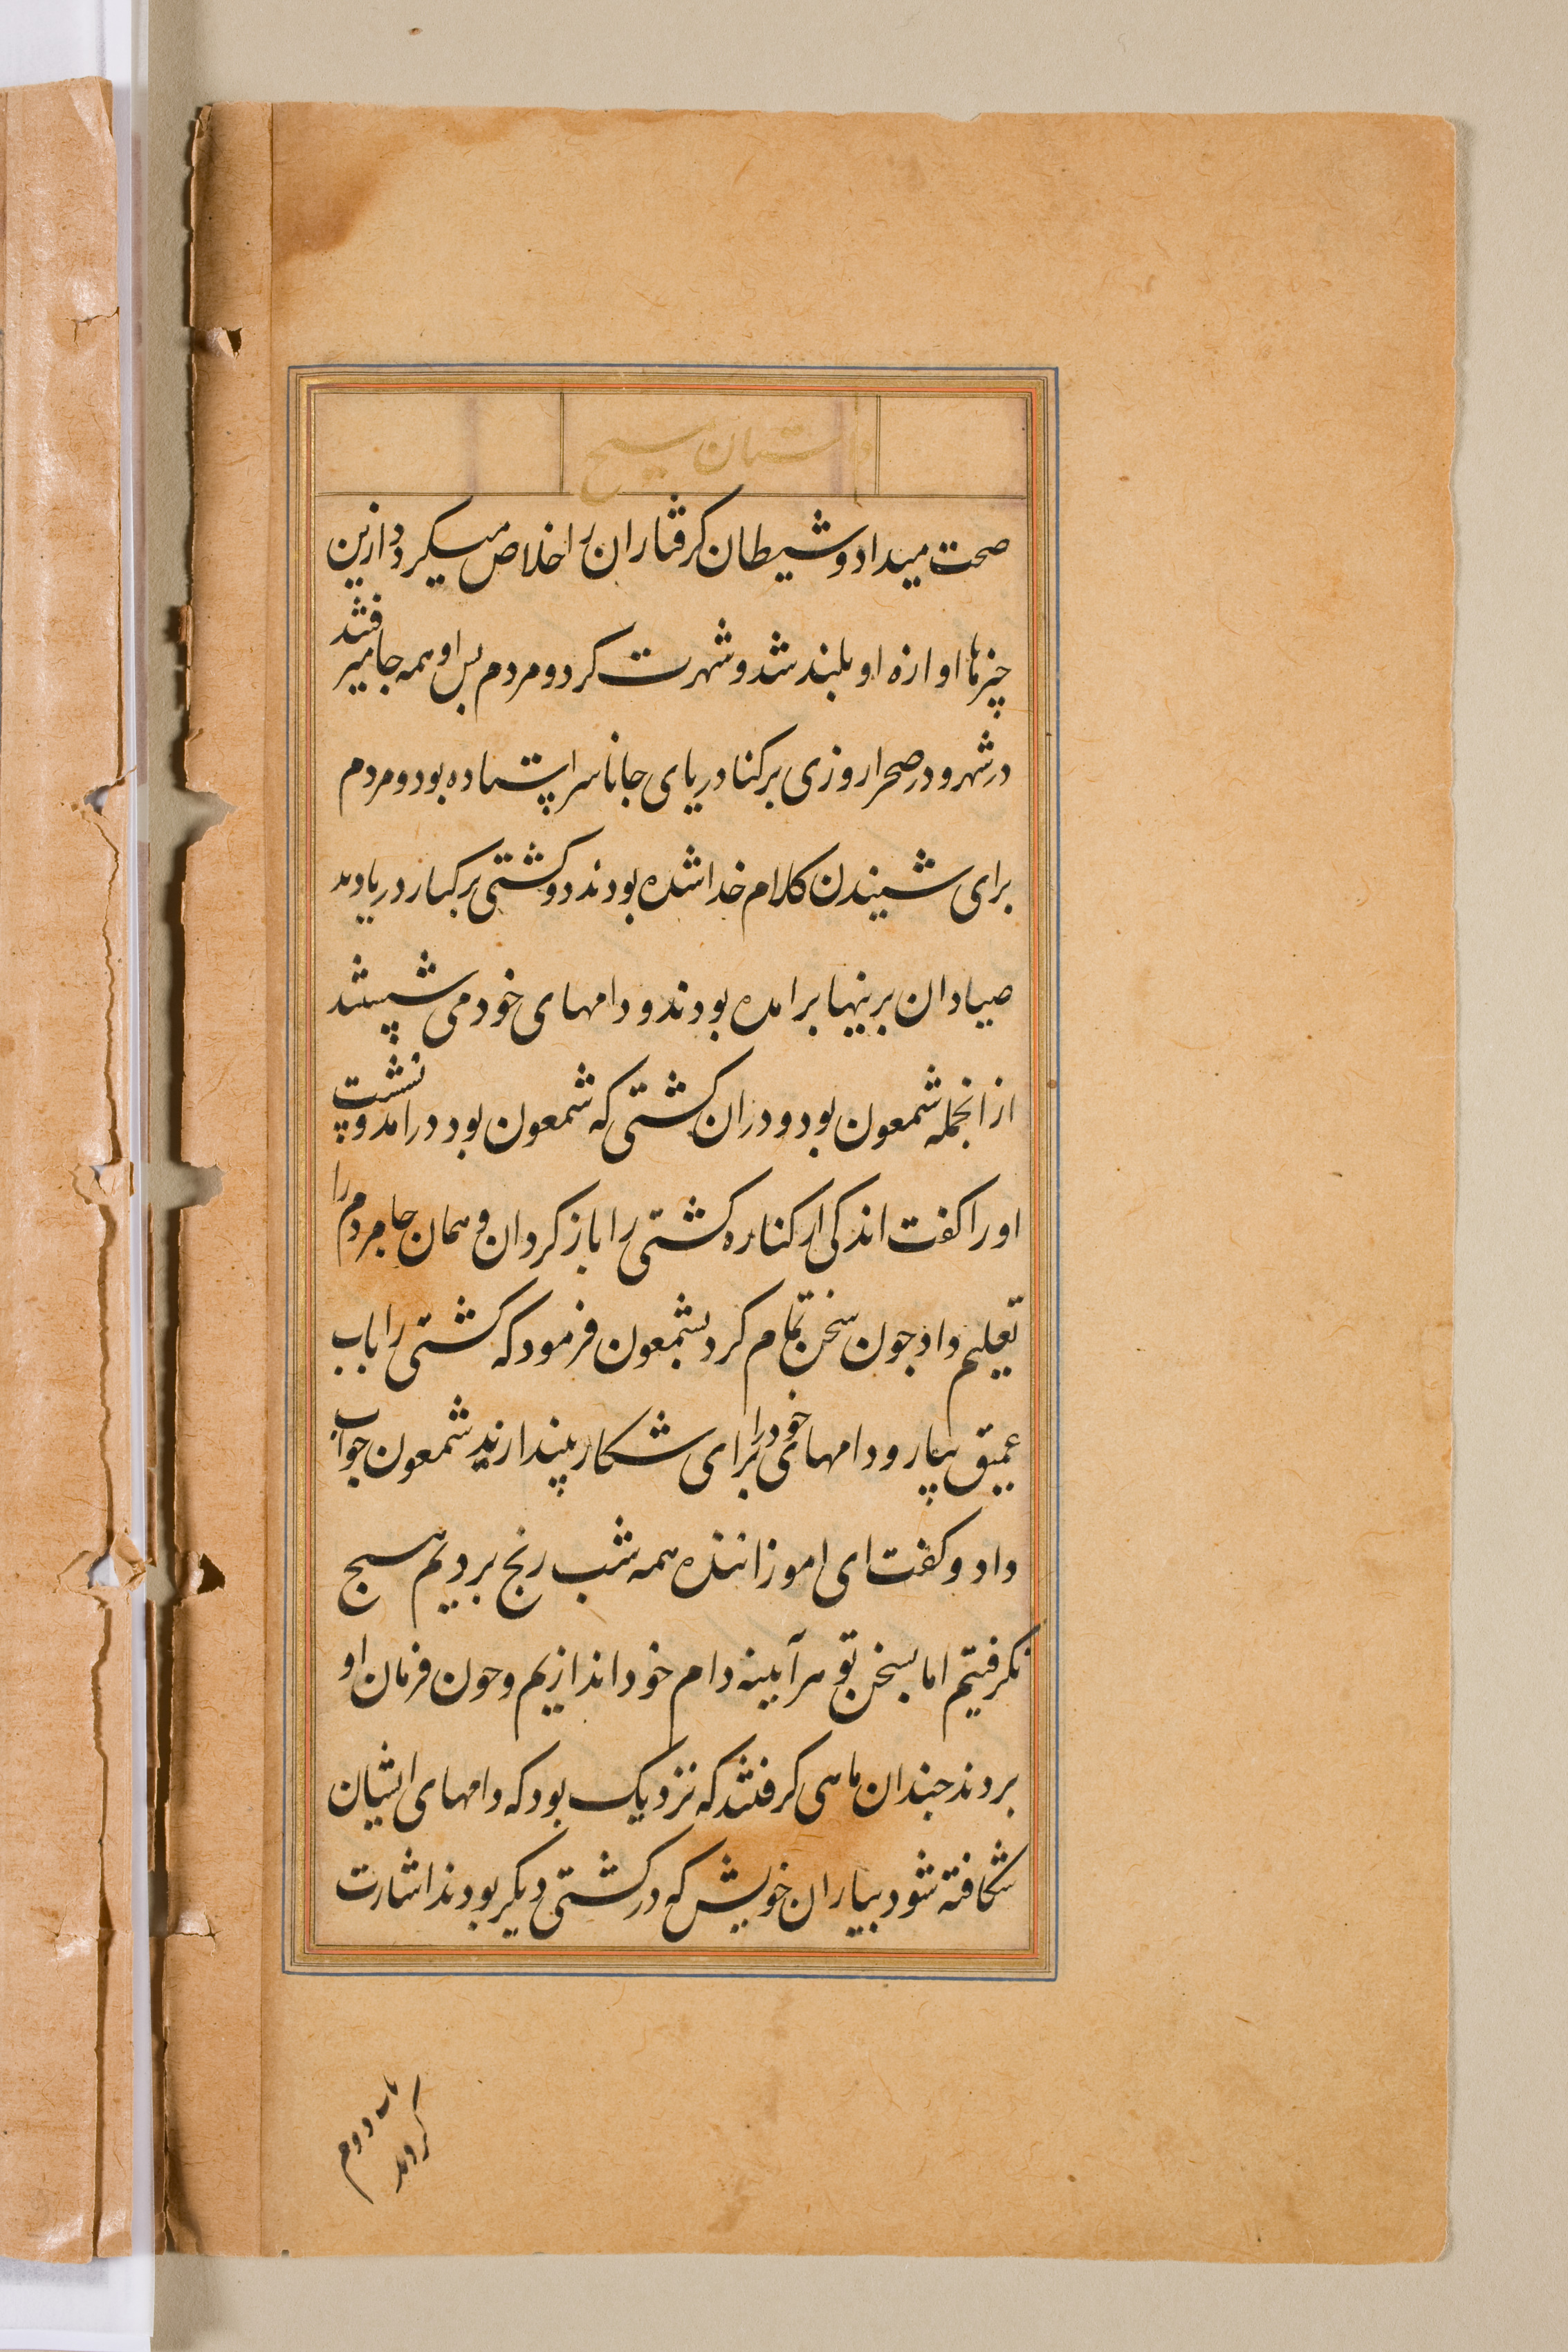 داستان مسیح
صحت میداد و شیطان کرفتاران را خلاص میکرد ازین
چیزها اوازه او بلند شد و شهرت کرد و مردم پس او همه جا میرفتند
در شهر و در صحرا روزی بر کنا دریای جاناسر ایستاده بود و مردم
برای شنیدن کلام خدا شده بودند دو کشتی بر کنار دریا دید
صیادان برینها برامده بودند و دامهای خود می شستند
از انجمله شمعون بود و دران کشتی که شمعون بود درامد و نشست
او را کفت اندکی از کناره کشتی را باز کردان و همان جا مردم را
تعلیم داد چون سخن تمام کرد بشمعون فرمود که کشتی را باب
عمیق بیار و دامهای خود را برای شکار بیندازید شمعون جواب
داد و کفت ای اموزاننده همه شب رنج بردیم هیچ
نکرفتیم اما بسخن تو هرآیینه دام خود اندازیم و چون فرمان او
بردند چندان ماهی کرفتند که نزدیک بود که دامهای ایشان
شکافته شود بیاران خویش که در کشتی دیکر بودند اشارت
کردند
باب دوم